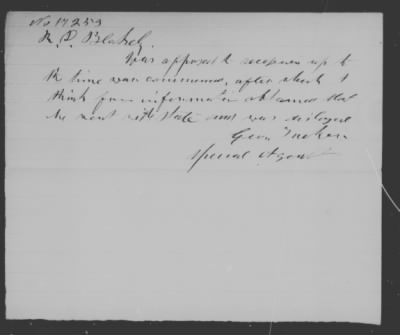 No 17253
R. D. Blakely.
Was opposed to secession up to
the time war commenced, after which I
think from information obtained that
he went with state and was disloyal
Geo Tucker
Special Agent